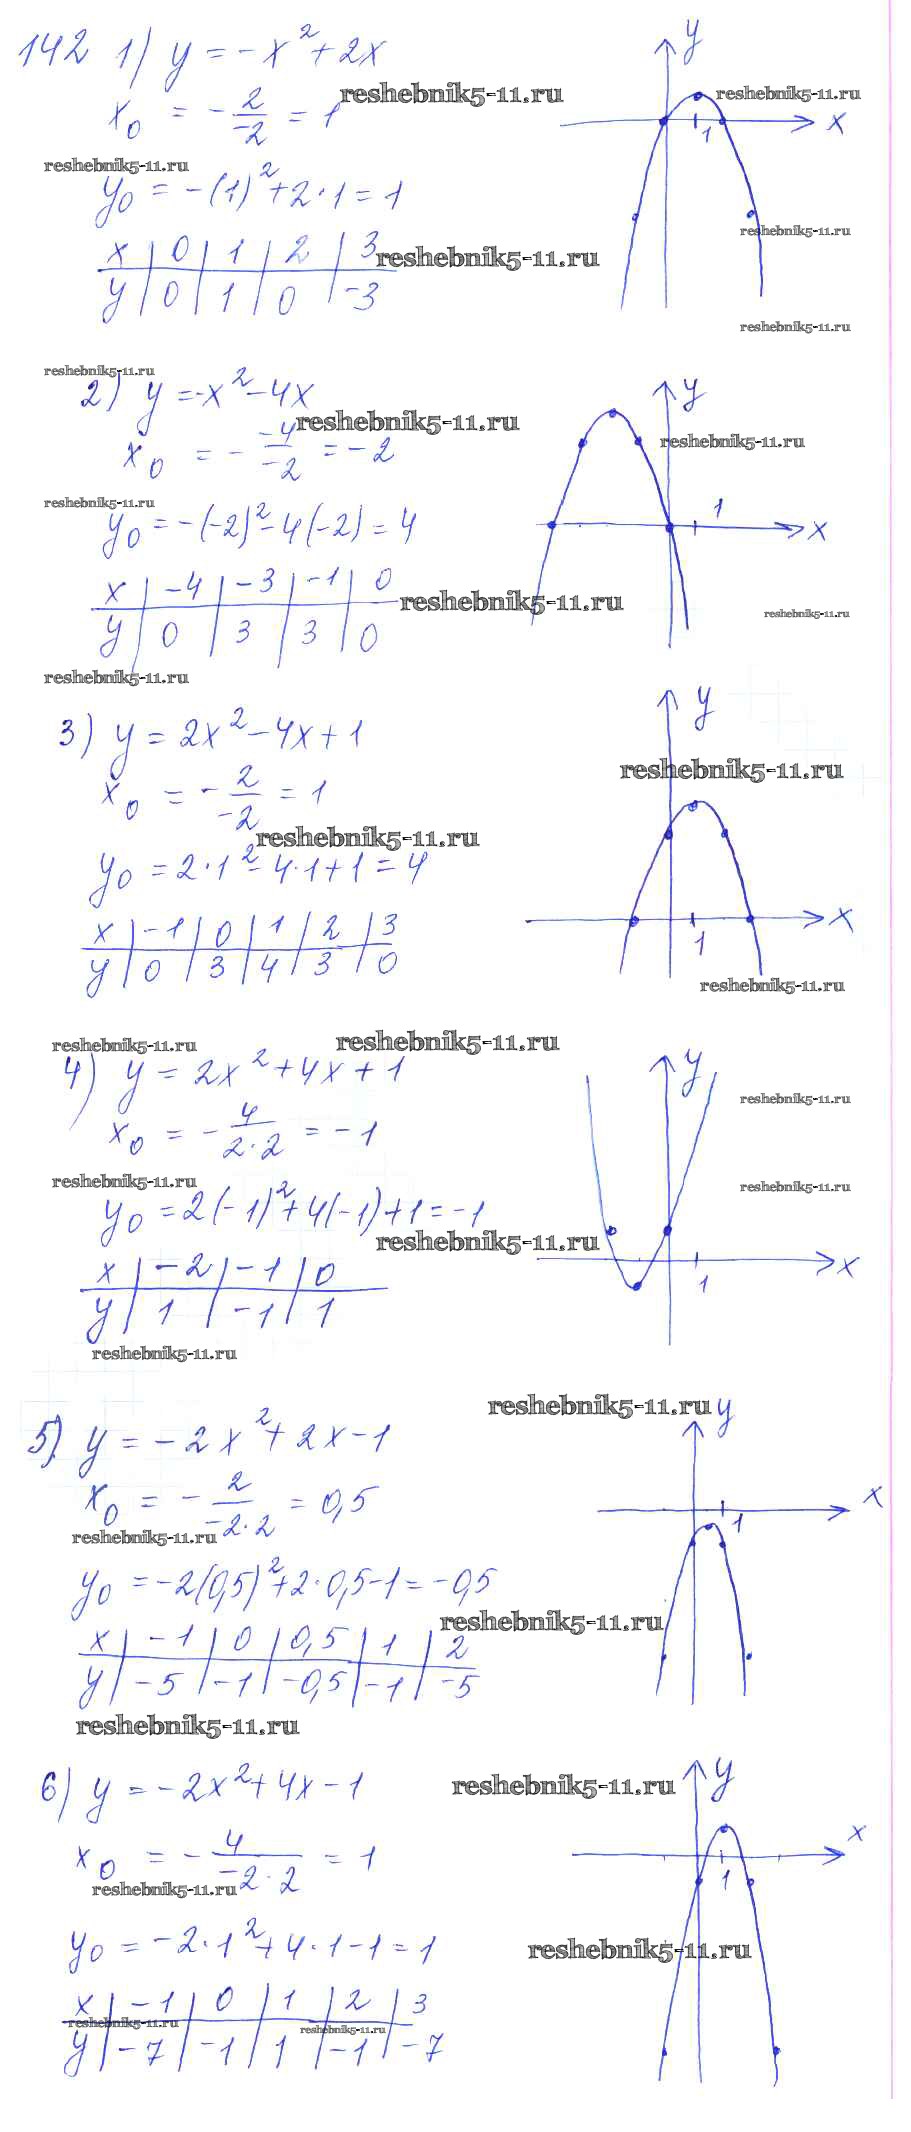 142 1) y = -x² + 2x
x₀ = -2/-2 = 1
reshebnik5-11.ru
reshebnik5-11.ru
y₀ = -(1)² + 2·1 = 1
x | 0 | 1 | 2 | 3
y | 0 | 1 | 0 | -3
reshebnik5-11.ru
y
reshebnik5-11.ru
x
1
reshebnik5-11.ru
reshebnik5-11.ru
reshebnik5-11.ru
2) y = -x² - 4x
reshebnik5-11.ru
x₀ = - -4/-2 = -2
reshebnik5-11.ru
y₀ = -(-2)² - 4(-2) = 4
x | -4 | -3 | -1 | 0
y | 0 | 3 | 3 | 0
reshebnik5-11.ru
reshebnik5-11.ru
y
reshebnik5-11.ru
1
x
reshebnik5-11.ru
3) y = 2x² - 4x + 1
x₀ = -2/-2 = 1
reshebnik5-11.ru
y₀ = 2·1² - 4·1 + 1 = 4
x | -1 | 0 | 1 | 2 | 3
y | 0 | 3 | 4 | 3 | 0
y
reshebnik5-11.ru
x
1
reshebnik5-11.ru
reshebnik5-11.ru
reshebnik5-11.ru
4) y = 2x² + 4x + 1
x₀ = -4/2·2 = -1
reshebnik5-11.ru
y₀ = 2(-1)² + 4(-1) + 1 = -1
reshebnik5-11.ru
x | -2 | -1 | 0
y | 1 | -1 | 1
reshebnik5-11.ru
y
reshebnik5-11.ru
reshebnik5-11.ru
x
1
reshebnik5-11.ru
5) y = -2x² + 2x - 1
x₀ = -2/-2·2 = 0,5
reshebnik5-11.ru
y₀ = -2(0,5)² + 2·0,5 - 1 = -0,5
reshebnik5-11.ru
x | -1 | 0 | 0,5 | 1 | 2
y | -5 | -1 | -0,5 | -1 | -5
reshebnik5-11.ru
y
x
1
6) y = -2x² + 4x - 1
reshebnik5-11.ru
x₀ = -4/-2·2 = 1
reshebnik5-11.ru
y₀ = -2·1² + 4·1 - 1 = 1
reshebnik5-11.ru
x | -1 | 0 | 1 | 2 | 3
reshebnik5-11.ru
reshebnik5-11.ru
y | -7 | -1 | 1 | -1 | -7
y
x
1